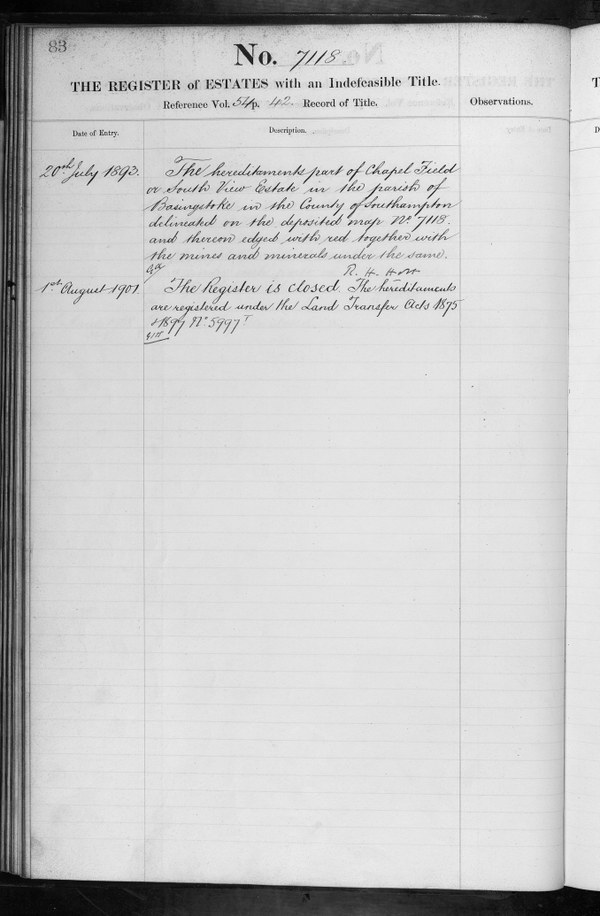 83
No. 7118.
THE REGISTER of ESTATES with an Indefeasible Title.
Reference Vol. 54 p. 42. Record of Title.
Observations.
Date of Entry.
Description.
20th July 1893.
The hereditaments part of Chapel Field
or South View Estate in the parish of
Basingstoke in the County of Southampton
delineated on the deposited map No. 7118.
and thereon edged with red together with
the mines and minerals under the same.
R. H. Holt
1st August 1901.
The Register is closed. The hereditaments
are registered under the Land Transfer Acts 1875
& 1897 No. 5997